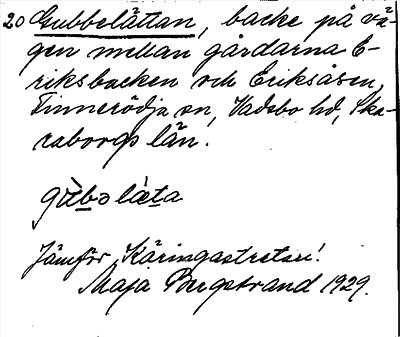 20 Gubbelättan, backe på vä-
gen mellan gårdarna E-
riksbacken och Eriksåsen,
Finnerödja sn, Vadsbo hd, Ska-
raborgs län.
gùbəlæ̀ta
Jämför Käringastretan!
Maja Bergstrand 1929.